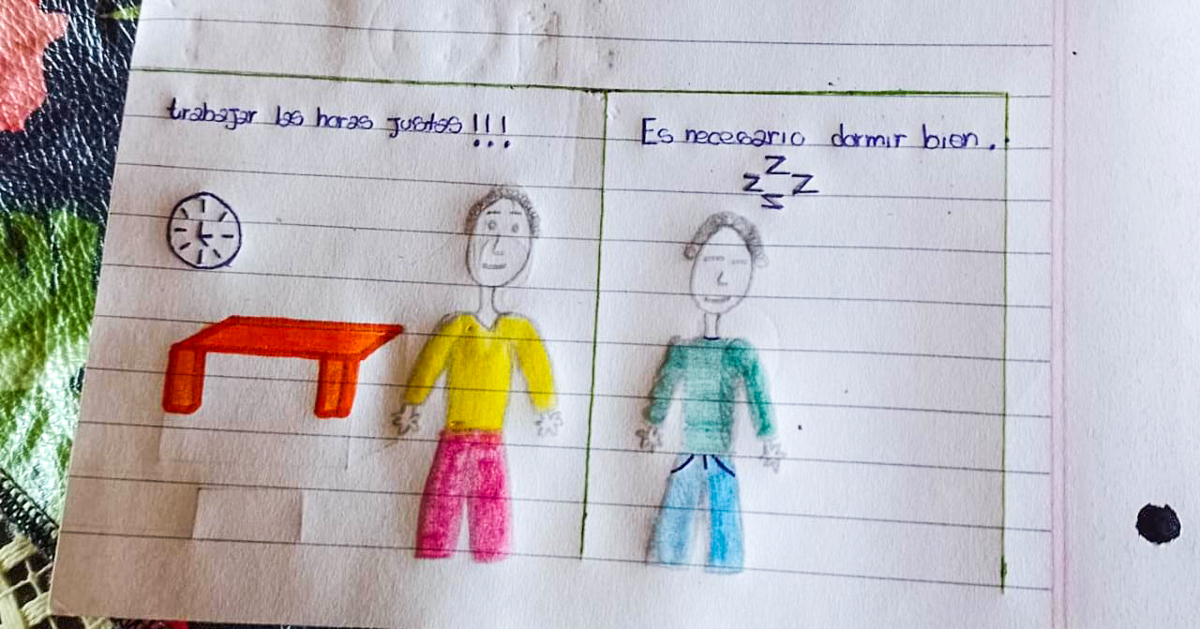 trabajar las horas justas!!!
Es necesario dormir bien.
Z
Z Z
Z